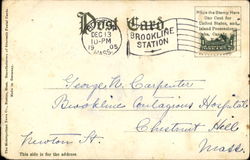 Post Card
Place the Stamp Here
One Cent for
United States, and
Island Possessions
DEC 13
10-PM
1905
MASS.
BROOKLINE
STATION
George N. Carpenter
Brookline Contagious Hospital
Chestnut Hill
Newton St.
Mass.
This side is for the address